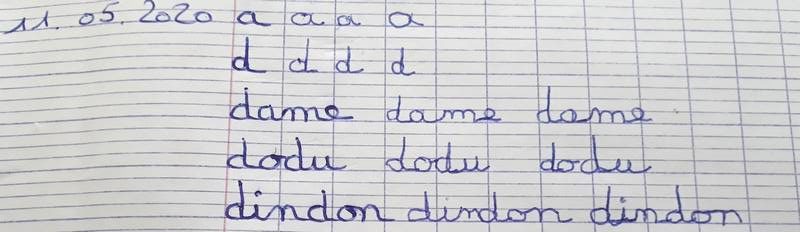 11.05.2020 a a a a
d d d d
dame dame dame
dodu dodu dodu
dindon dindon dindon